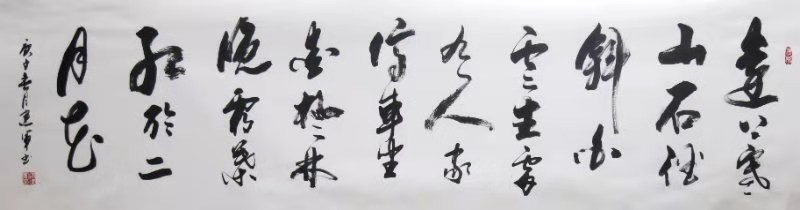 遠上寒
山石徑
斜白
雲生處
有人家
停車坐
愛楓林
晚霜葉
紅於二
月花
庚子春月建軍书